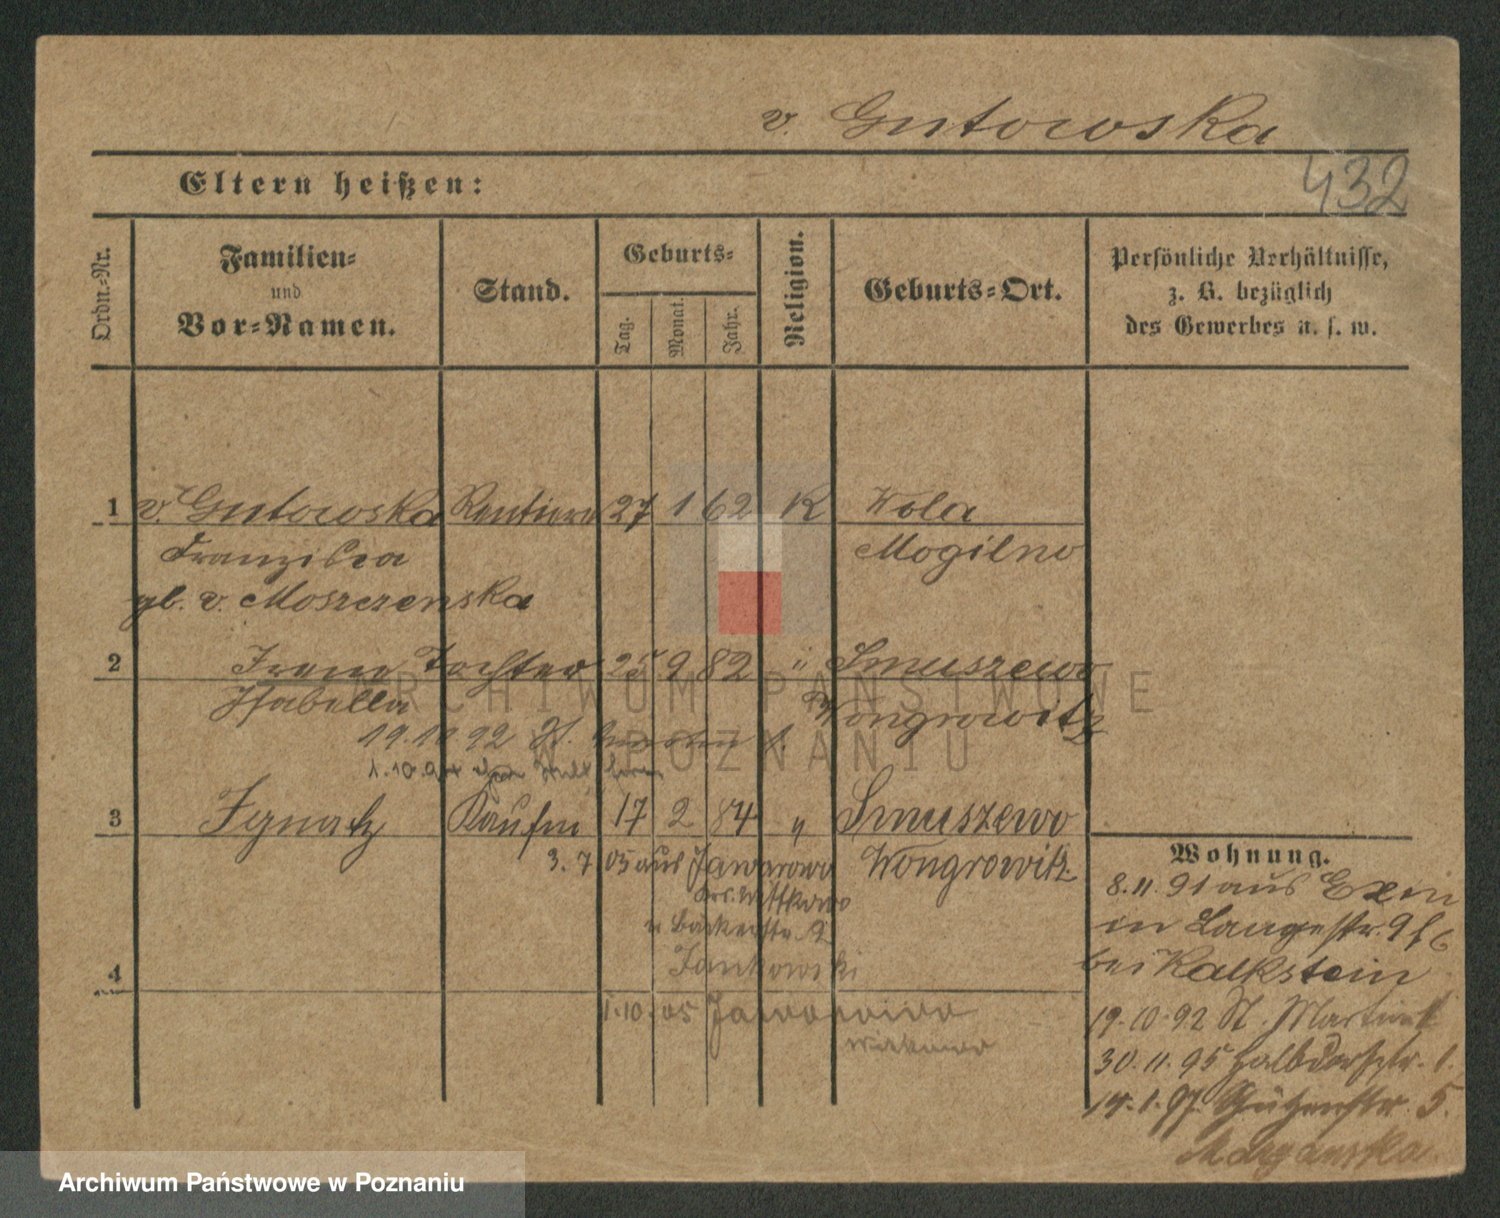 v. Gutowska
432
Eltern heißen:
Ordn.-Nr.
Familien-
und
Vor-Namen.
Stand.
Geburts-
Tag.
Monat.
Jahr.
Religion.
Geburts-Ort.
Persönliche Verhältnisse,
z. B. bezüglich
des Gewerbes u. s. w.
1 v. Gutowska Rentiere 27 1 62 K Wola
Franziska Mogilno
gb. v. Moszczenska
2 Irene Tochter 25 9 82 " Smuszewo
Isabella Wongrowitz
19.10 92 St.
1.10.94
3 Ignatz Kaufm 17 2 84 " Smuszewo
3.7.05 aus Jaworowo Wongrowitz
Krs. Wittkowo
Bäckerstr. 2
Jankowski
4
1.10.05 Jaworowo
Witkowo
Wohnung.
8.11.91 aus Exin
in Langestr. 9
bei Kalkstein
19.10.92 St. Martin
30.11.95 Halbdorfstr. 1.
14.1.97. Schützenstr. 5.
ARCHIWUM PAŃSTWOWE
W POZNANIU
Archiwum Państwowe w Poznaniu